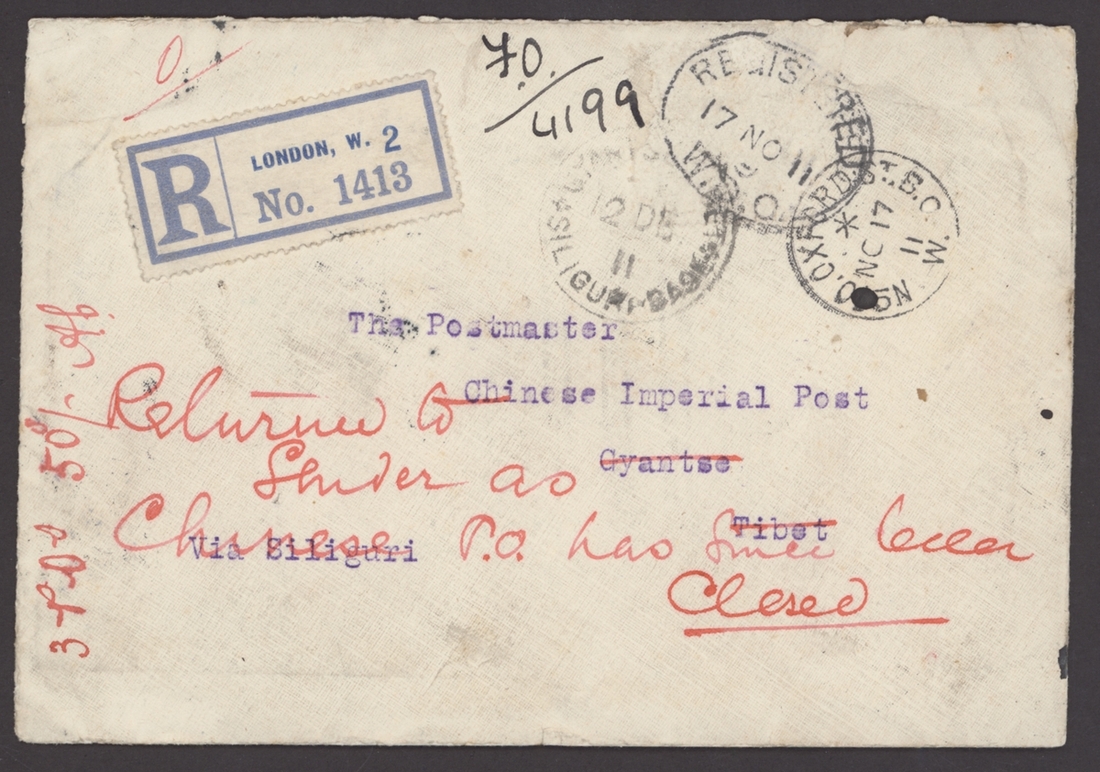 0
F.O.
4199
R
LONDON, W. 2
No. 1413
REGISTERED
17 NO 11
W.D.O.
OXFORD ST. B.O. W
* NC 17
11
SILIGURI-BASE
12 DE
11
The Postmaster
Chinese Imperial Post
Gyantse
Tibet
Via Siliguri
Returned to
Sender as
Chinese P.O. has since been
Closed